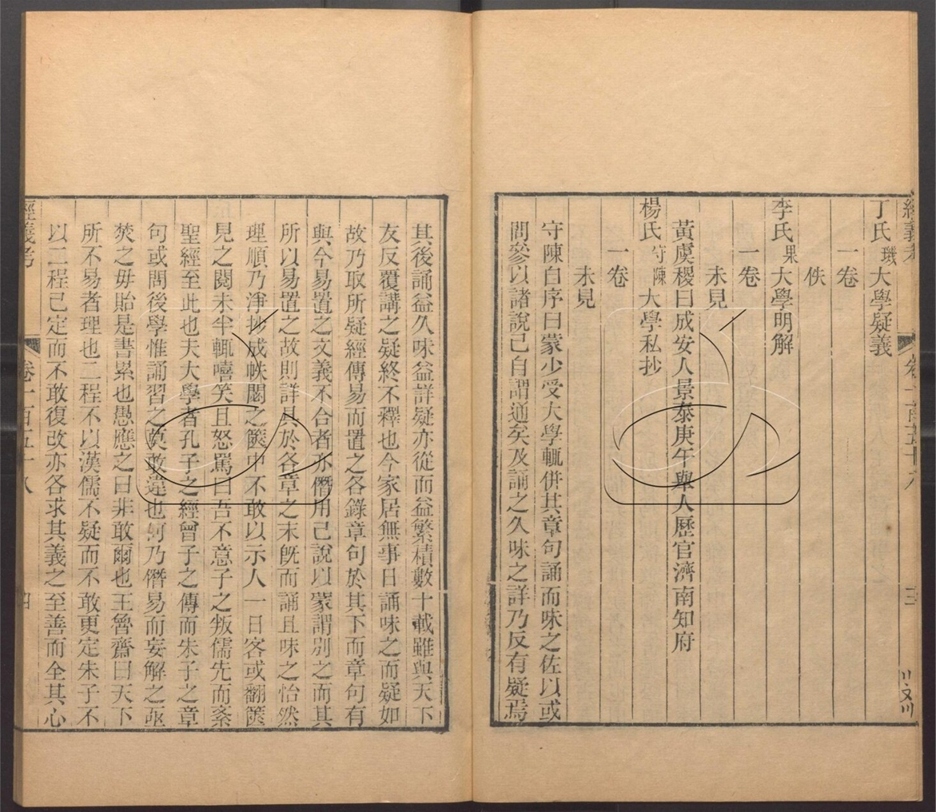 丁氏璣大學疑義
一卷
佚
李氏果大學明解
一卷
未見
黃虞稷曰成安人景泰庚午舉人歷官濟南知府
楊氏守陳大學私抄
一卷
未見
守陳自序曰蒙少受大學輒併其章句誦而味之佐以或
問參以諸說已自謂通矣及誦之久味之詳乃反有疑焉
其後誦益久味益詳疑亦從而益繁積數十載雖與天下
友反覆講之疑終不釋也今家居無事日誦味之而疑如
故乃取所疑經傳易而置之各錄章句於其下而章句有
與今易置之文義不合者亦僭用己說以蒙謂別之而其
所以易置之故則詳具於各章之末旣而誦且味之怡然
理順乃淨抄成帙閟之篋中不敢以示人一日客或翻篋
見之閱未半輒嘻笑且怒罵曰吾不意子之叛儒先而紊
聖經至此也夫大學者孔子之經曾子之傳而朱子之章
句或問後學惟誦習之莫敢違也何乃僭易而妄解之亟
焚之毋貽是書累也愚應之曰非敢爾也王魯齋曰天下
所不易者理也二程不以漢儒不疑而不敢更定朱子不
以二程已定而不敢復改亦各求其義之至善而全其心
經義考
卷一百五十八
四